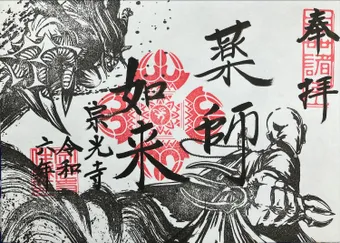 奉拝
薬師
如来
崇光寺
令和
六年